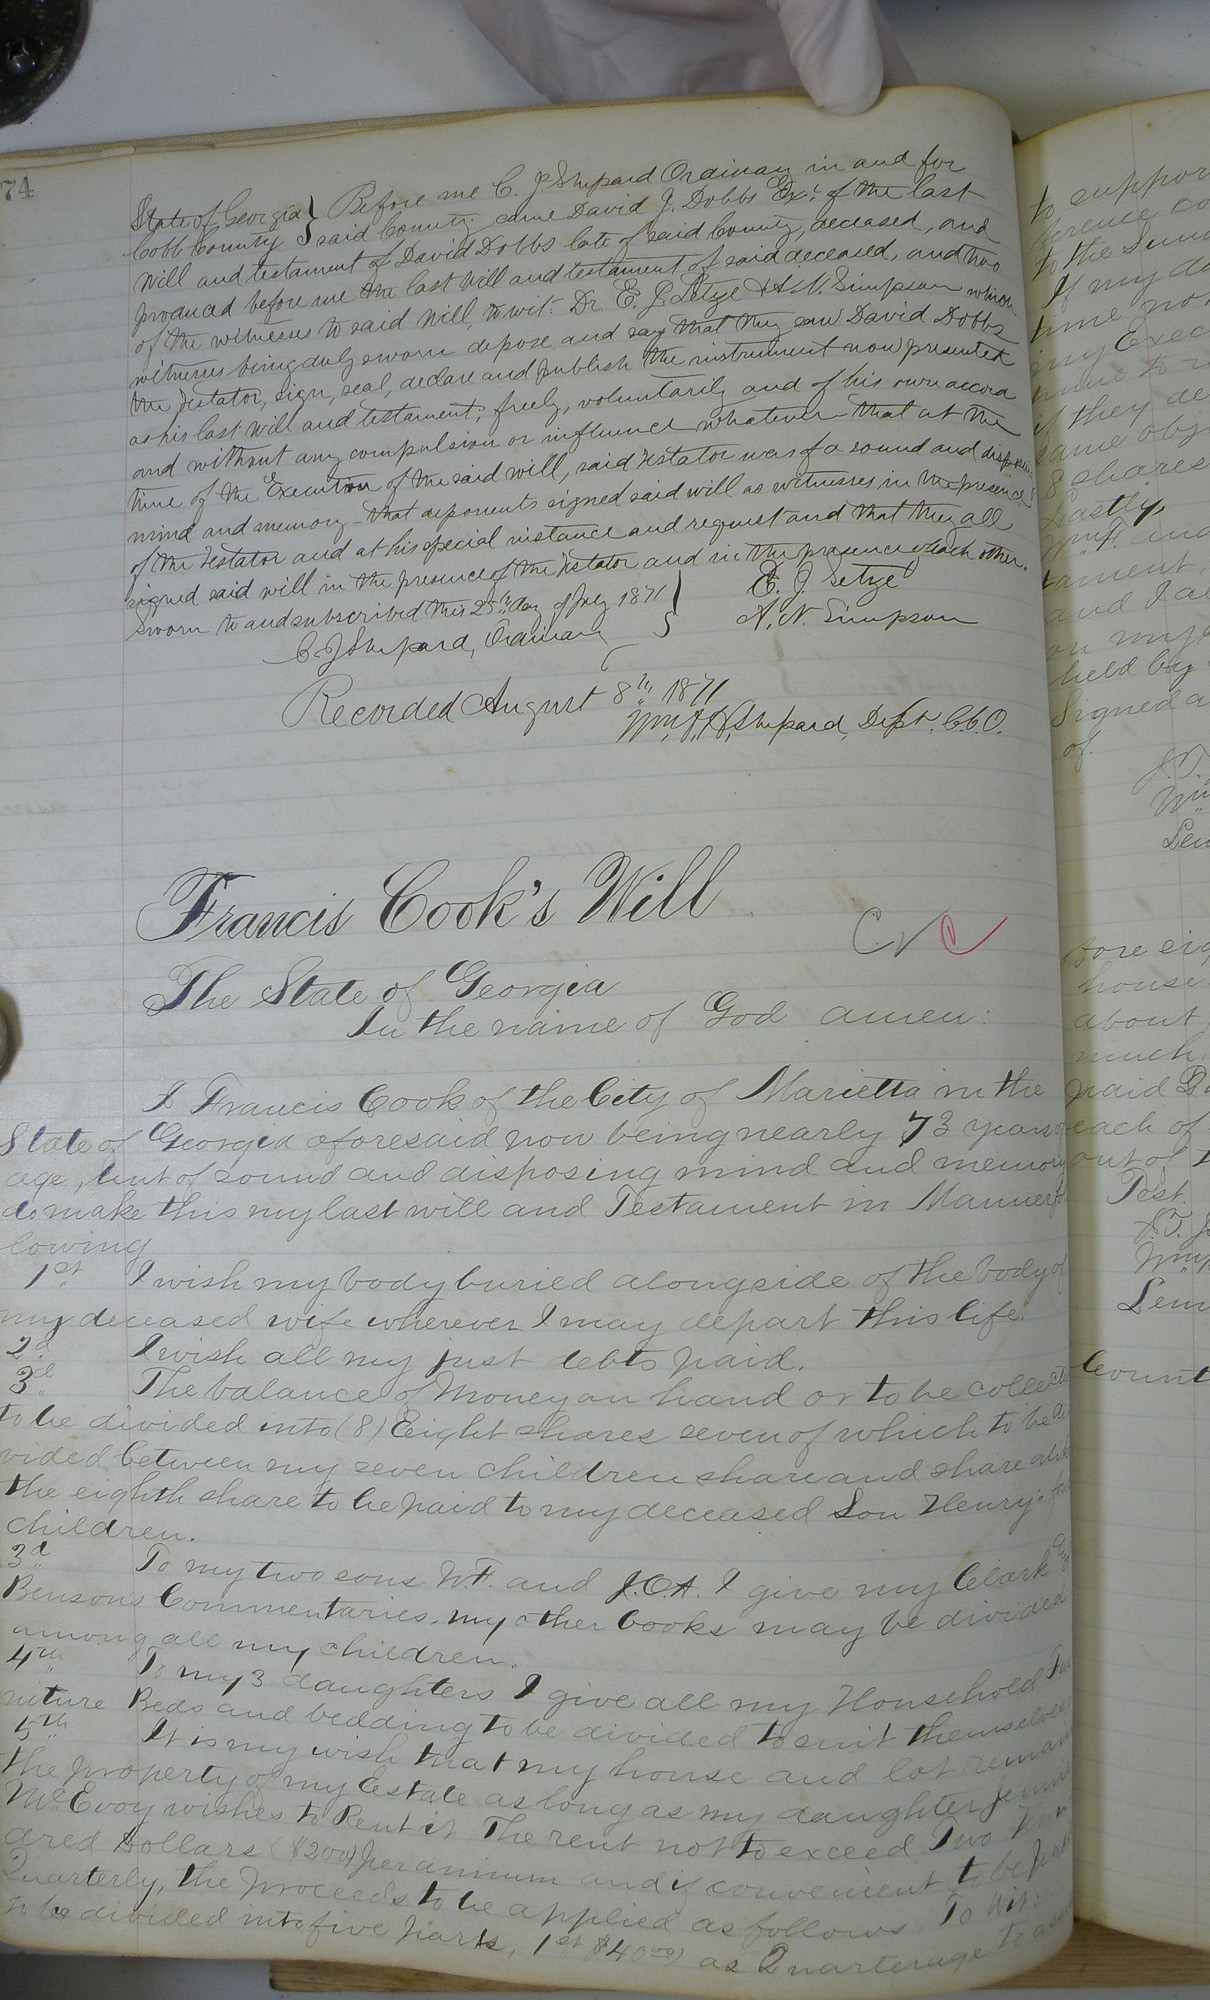 74
State of Georgia } Before me C. J. Shepard Ordinary in and for
Cobb County } said County came David J. Dobbs Exr. of the last
Will and testament of David Dobbs late of said County, deceased, and
produced before me the last will and testament of said deceased, and two
of the witnesses to said Will, to wit: Dr. E. J. Setze & A. N. Simpson which
witnesses being duly sworn depose and say that they saw David Dobbs
the Testator, sign, seal, declare and publish the instrument now presented
as his last will and testament; freely, voluntarily and of his own accord
and without any compulsion or influence whatever - that at the
time of the Execution of the said will, said Testator was of a sound and
mind and memory - that deponents signed said will as witnesses in the presence
of the Testator and at his special instance and request and that they all
signed said will in the presence of the Testator and in the presence of each other.
Sworn to and subscribed this 25th day of July 1871 } E. J. Setze
C. J. Shepard, Ordinary } A. N. Simpson
Recorded August 8th, 1871
Shepard, Dept. C.C.O.
Francis Cook's Will
The State of Georgia
In the name of God amen:
I Francis Cook of the City of Marietta in the
State of Georgia aforesaid now being nearly 73 years of
age, but of sound and disposing mind and memory
do make this my last will and Testament in Manner fol
lowing
1st I wish my body buried alongside of the body of
my deceased wife wherever I may depart this life.
2d I wish all my just debts paid.
3d The balance of Money on hand or to be collected
to be divided into (8) Eight shares seven of which to be di
vided between my seven children share and share alike
the eighth share to be paid to my deceased Son Henry's four
children.
3d To my two sons W.F. and J.O.A. I give my Clark &
Bensons Commentaries. my other books may be divided
among all my children.
4th To my 3 daughters I give all my Household Fur
niture Beds and bedding to be divided to suit themselves
5th It is my wish that my house and lot remain
the property of my Estate as long as my daughter Jennie
McEvoy wishes to Rent it The rent not to exceed Two Hun
dred Dollars ($200) per annum and if convenient to be paid
Quarterly, the proceeds to be applied as follows To Wit:
to be divided into five parts, 1st $40.00 as Quarterage to
to suppor
to the
If my
time
my Exec
if they
same obj
8 shares
Lastly,
Wm F. and
tament
and I
held by
Signed a
of.
J.T.
Wm
Lem
house
about
much
paid
each of
out of
Post
Lem
Count